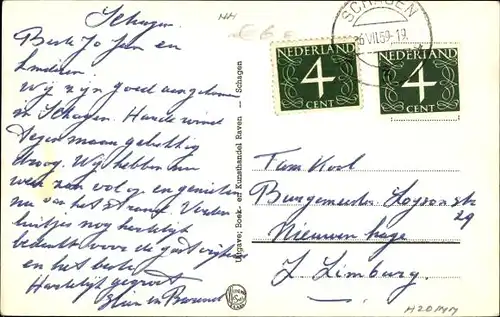 Schagen
Beste Jo Jan en
kinderen
Wij zijn goed aangekomen
in Schagen. Harde wind
tegen maar gelukkig
droog. Wij hebben nu
weer zon volop en genieten
nu van het strand. Verder
luitjes nog hartelijk
bedankt voor de gastvrijheid
en het beste
Hartelijk gegroet
en Barend
NH
Uitgave; Boek- en Kunsthandel Raven Schagen
SCHAGEN
6 VII.59-19
NEDERLAND
4
CENT
NEDERLAND
4
CENT
Fam Kool
Burgemeester str
29
Nieuwenhage
Z Limburg.